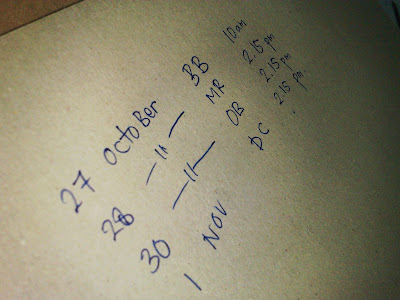 27 October BB 10am
28 — " — MR 2.15 pm
30 — " — OB 2.15 pm
1 NOV DC 2.15 pm